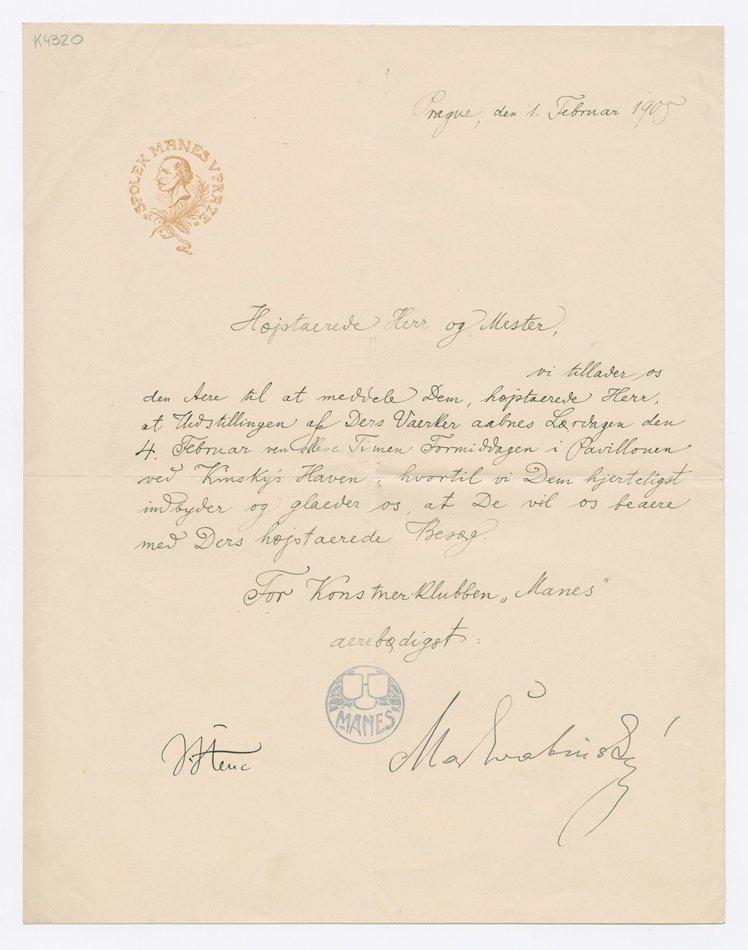 K4320
Prague, den 1. Februar 1905
SPOLEK MANES V PRAZE
Højstaerede Herr og Mester,
vi tillader os
den Aere til at meddele Dem, højstaerede Herr,
at Udstillingen af Ders Vaerker aabnes Lørdagen den
4. Februar ven elleve Timen Formiddagen i Pavillonen
ved Kinsky's Haven, hvortil vi Dem hjerteligst
indbyder og glaeder os, at De vil os beaere
med Ders højstaerede Besøg.
For Konstnerklubben „Manes"
aerebødigst:
MANES
Max Švabinský